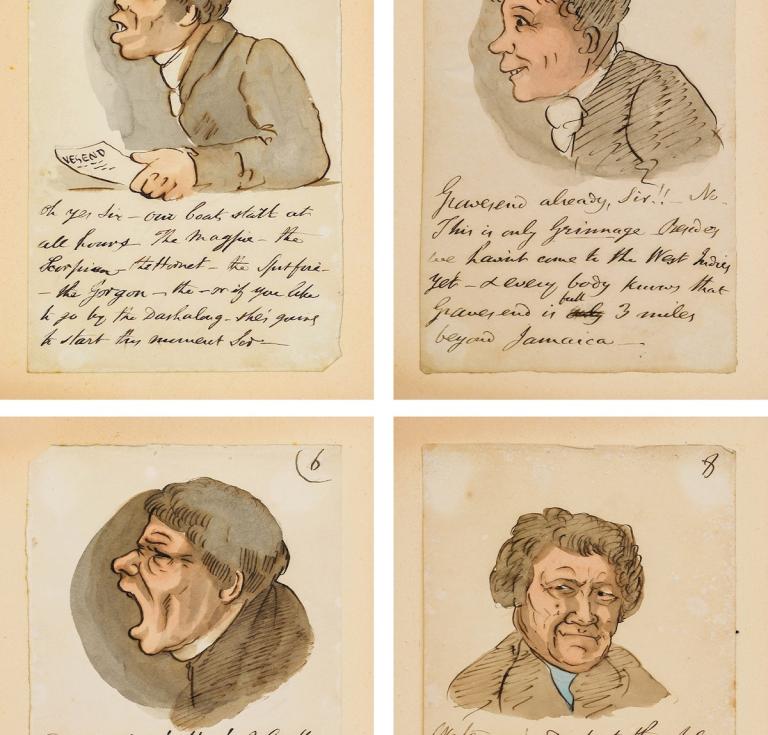 VESEND
Oh yes Sir - our boats start at
all hours The Magpie - the
Scorpion - the Hornet - the Spitfire -
- the Gorgon - the - or if you like
to go by the Dashalong - she's going
to start this moment Sir -
Gravesend already, Sir!! - No -
This is only Grinnage Besides
we havint come to the West Indies
yet - & every body knows that
Gravesend is full 3 miles
beyond Jamaica -
6
8